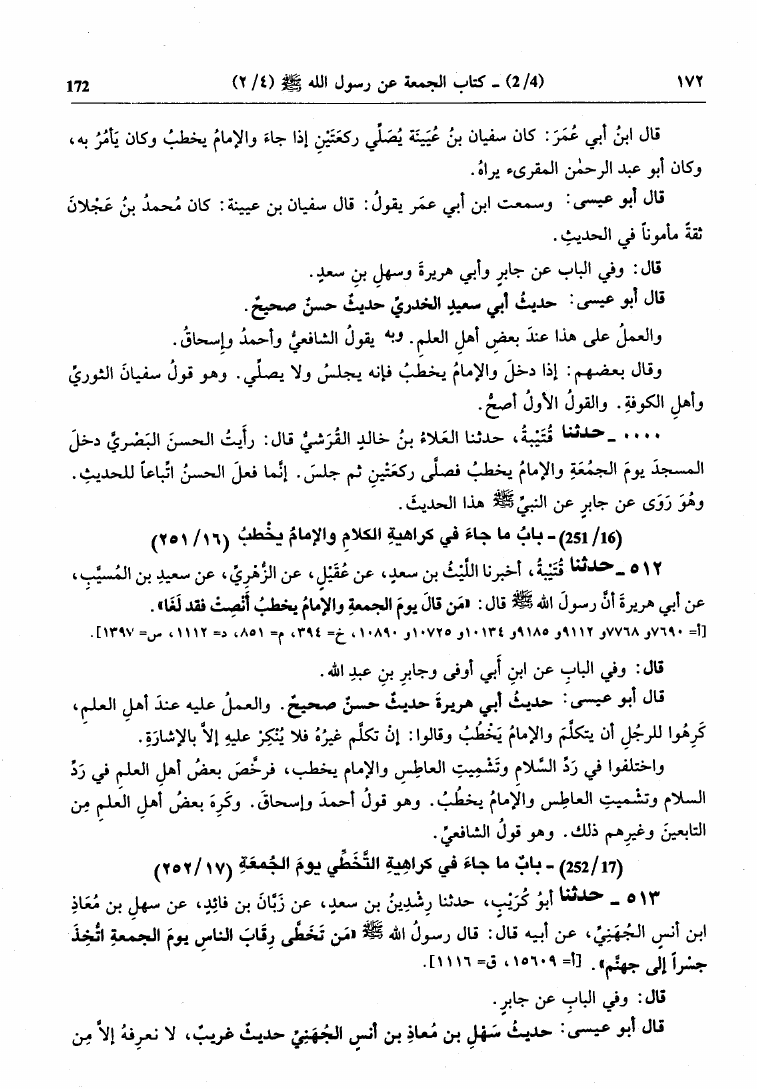 ١٧٢ (2/4) ـ كتاب الجمعة عن رسول الله ﷺ (٢/٤) 172
قال ابنُ أبي عُمَرَ: كان سفيان بنُ عُيَينَة يُصَلِّي ركعَتَيْنِ إذا جاءَ والإمامُ يخطبُ وكان يَأمُرُ به،
وكان أبو عبد الرحمٰن المقرىء يراهُ.
قال أبو عيسى: وسمعت ابن أبي عمَر يقولُ: قال سفيان بن عيينة: كان مُحمدُ بنُ عَجْلانَ
ثقةً مأموناً في الحديثِ.
قال: وفي الباب عن جابرٍ وأبي هريرةَ وسهلِ بنِ سعدٍ.
قال أبو عيسى: حديثُ أبي سعيدٍ الخدريِّ حديثٌ حسنٌ صحيحٌ.
والعملُ على هذا عندَ بعضِ أهلِ العلمِ. وبه يقولُ الشافعيُّ وأحمدُ وإسحاقُ.
وقال بعضهم: إذا دخلَ والإمامُ يخطبُ فإنه يجلسُ ولا يصلِّي. وهو قولُ سفيانَ الثوريِّ
وأهلِ الكوفةِ. والقولُ الأولُ أصحُّ.
٠٠٠٠ ـ حدثنا قُتَيْبةُ، حدثنا العَلاءُ بنُ خالدٍ القُرَشيُّ قال: رأيتُ الحسنَ البَصْريَّ دخلَ
المسجدَ يومَ الجمُعَةِ والإمامُ يخطبُ فصلَّى ركعَتْينِ ثم جلسَ. إنَّما فعلَ الحسنُ اتِّباعاً للحديثِ.
وهُوَ رَوَى عن جابرٍ عن النبيِّ ﷺ هذا الحديثَ.
(251/16) - بابُ ما جاءَ في كراهيةِ الكلامِ والإمامُ يخْطبُ (٢٥١/١٦)
٥١٢ ـ حدثنا قُتَيْبةُ، أخبرنا اللَّيْثُ بن سعدٍ، عن عُقَيْلٍ، عن الزُّهْريِّ، عن سعيدِ بن المُسيَّبِ،
عن أبي هريرةَ أنَّ رسولَ الله ﷺ قال: «مَن قالَ يومَ الجمعةِ والإمامُ يخطبُ أنْصِتْ فقد لَغَا».
[أ= ٧٦٩٠و ٧٧٦٨و ٩١١٢و ٩١٨٥و ١٠١٣٤و ١٠٧٢٥و ١٠٨٩٠، خ= ٣٩٤، م= ٨٥١، د= ١١١٢، س= ١٣٩٧].
قال: وفي البابِ عن ابنِ أَبي أوفى وجابرِ بنِ عبدِ الله.
قال أبو عيسى: حديثُ أبي هريرةَ حديثٌ حسنٌ صحيحٌ. والعملُ عليه عندَ أهلِ العلمِ،
كَرِهُوا للرجُلِ أن يتكلَّمَ والإمامُ يَخْطُبُ وقالوا: إنْ تكلَّم غيرُهُ فلا يُنْكِرْ عليهِ إلاَّ بالإشارَةِ.
واختلفوا في رَدِّ السَّلام وتَشْمِيتِ العاطِسِ والإمام يخطب، فرخَّصَ بعضُ أهلِ العلمِ في رَدِّ
السلام وتشْميتِ العاطِس والإمامُ يخطُبُ. وهو قولُ أحمدَ وإسحاقَ. وكَرِهَ بعضُ أهلِ العلم مِن
التابعينَ وغيرِهم ذلك. وهو قولُ الشافعيِّ.
(252/17) - بابُ ما جاءَ في كراهيةِ التَّخَطِّي يومَ الجُمعَةِ (٢٥٢/١٧)
٥١٣ ـ حدثنا أبوُ كُرَيْبٍ، حدثنا رِشْدِينُ بن سعدٍ، عن زَبَّانَ بن فائِدٍ، عن سهلِ بن مُعَاذِ
ابن أنسٍ الجُهَنِيِّ، عن أبيه قال: قال رسولُ الله ﷺ «مَن تَخَطَّى رِقَابَ الناسِ يومَ الجمعةِ اتُّخِذَ
جسراً إلى جهنَّم». [أ= ١٥٦٠٩، ق= ١١١٦].
قال: وفي البابِ عن جابرٍ.
قال أبو عيسى: حديثُ سَهْلِ بن مُعاذِ بن أنسٍ الجُهَنِيِّ حديثٌ غريبٌ، لا نعرِفهُ إلاَّ مِن